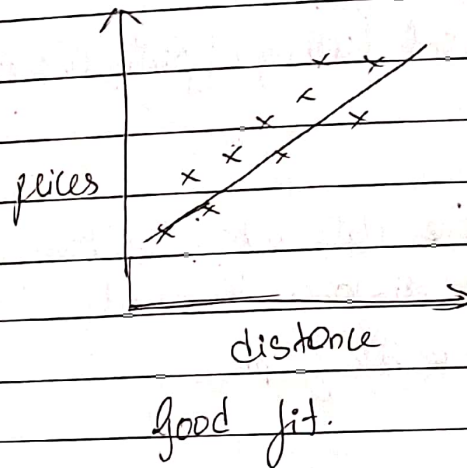 prices
distance
Good fit.